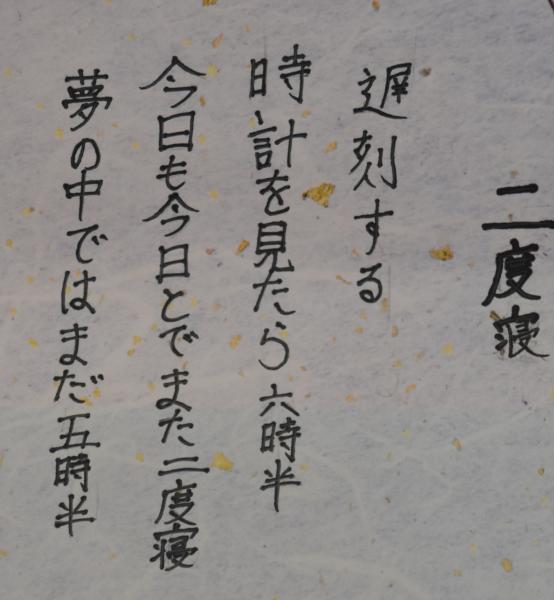 二度寝
遅刻する
時計を見たら六時半
今日も今日とでまた二度寝
夢の中ではまだ五時半